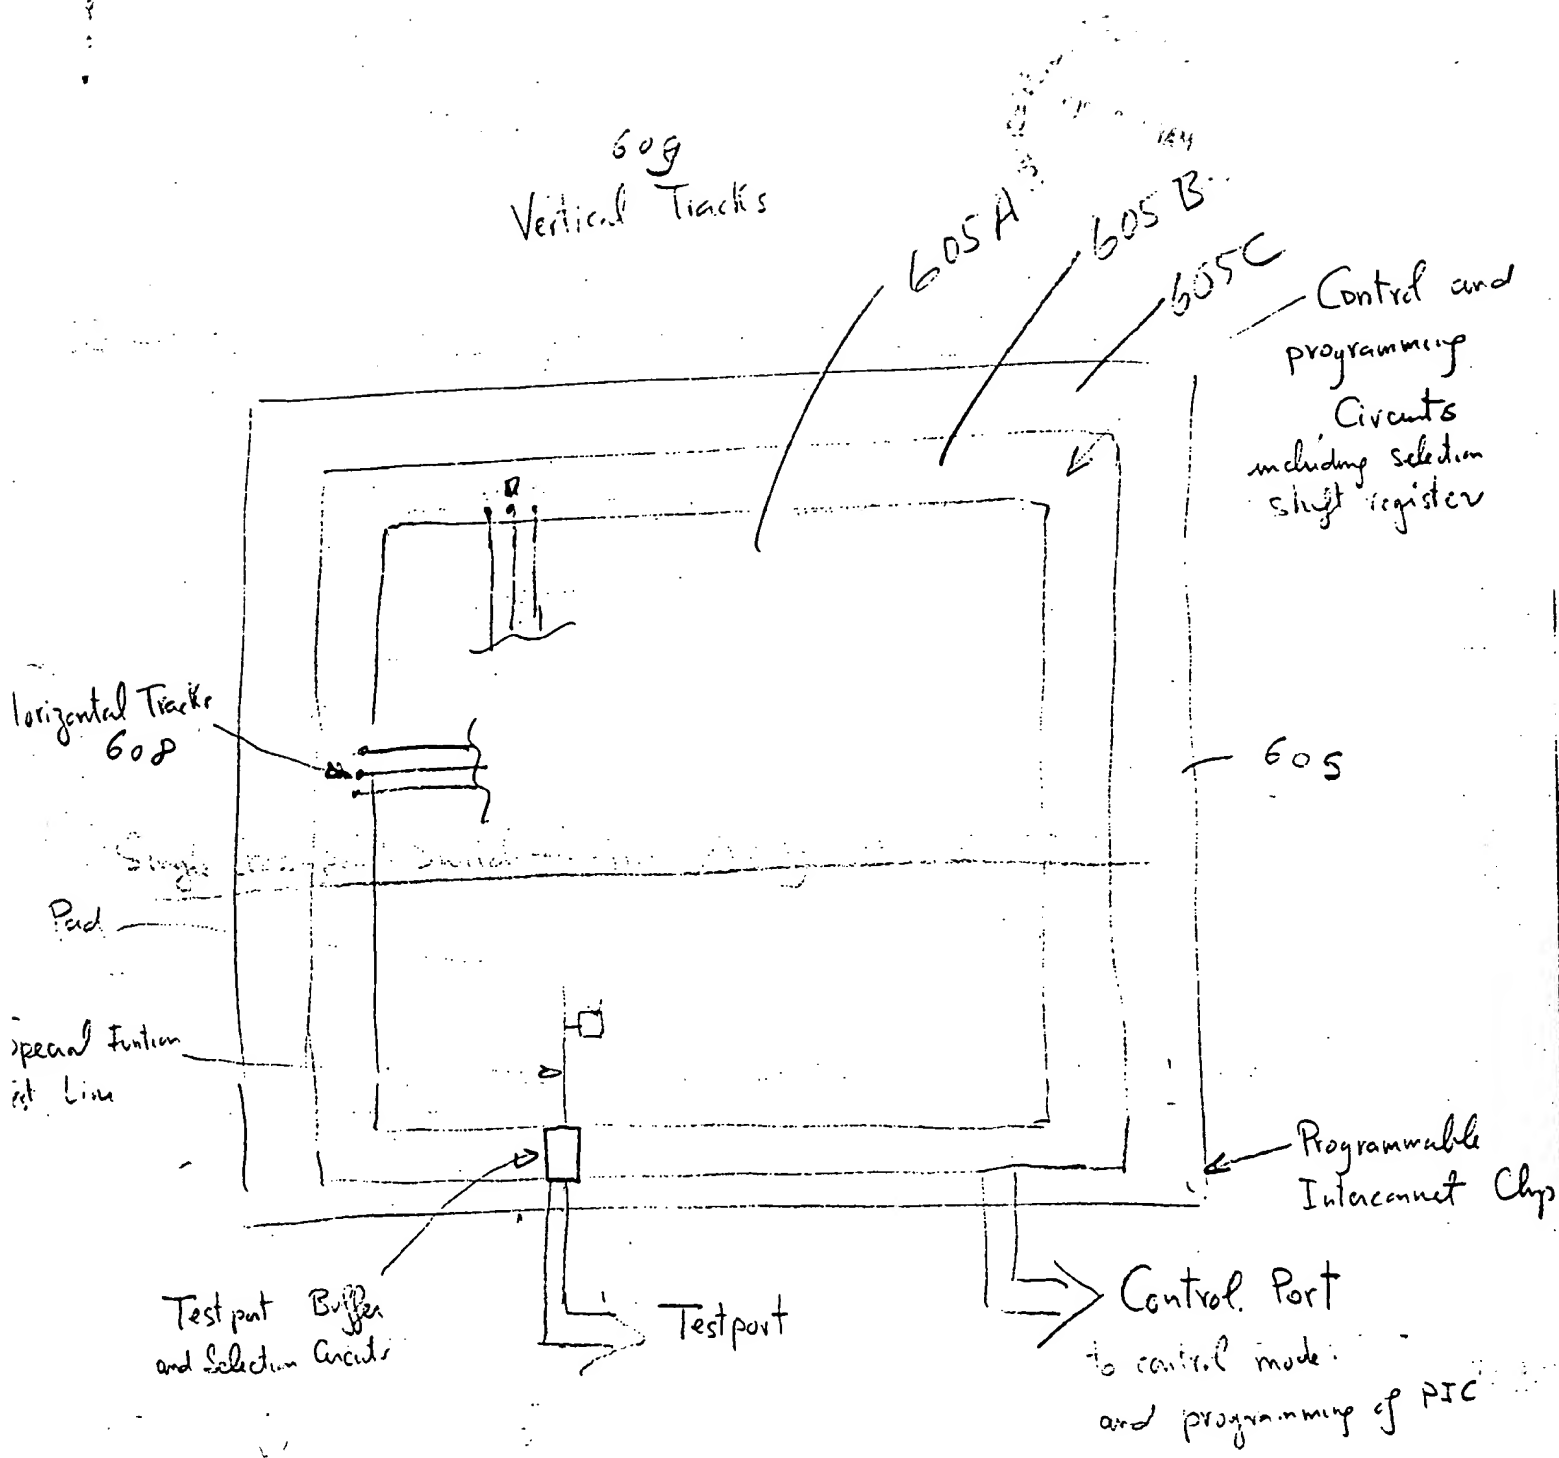 609
Vertical Tracks
605A
605B
605C
Control and
programming
Circuits
including selection
shift register
lorizontal Tracks
608
605
Pad
pecial Funtion
st Line
Programmable
Interconnet Chip
Testport Buffer
and Selection Circuits
Testport
Control Port
to control mode
and programming of PIC